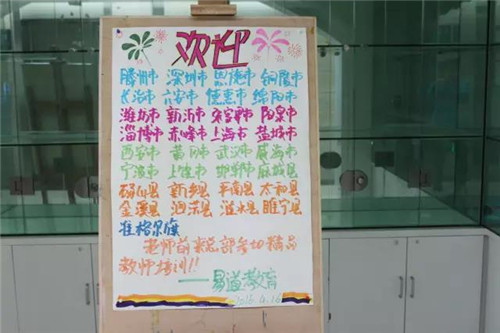 欢迎
滕州市 深圳市 恩施市 铜陵市
长治市 六安市 德惠市 绵阳市
潍坊市 新沂市 来宾市 阳泉市
淄博市 赤峰市 上海市 盐城市
西安市 黄冈市 武汉市 威海市
宁波市 上饶市 邯郸市 麻城县
砀山县 新乡县 平南县 太和县
金溪县 汨罗县 溆水县 睢宁县
准格尔旗
老师前来总部参加精品
教师培训!!
——易道教育